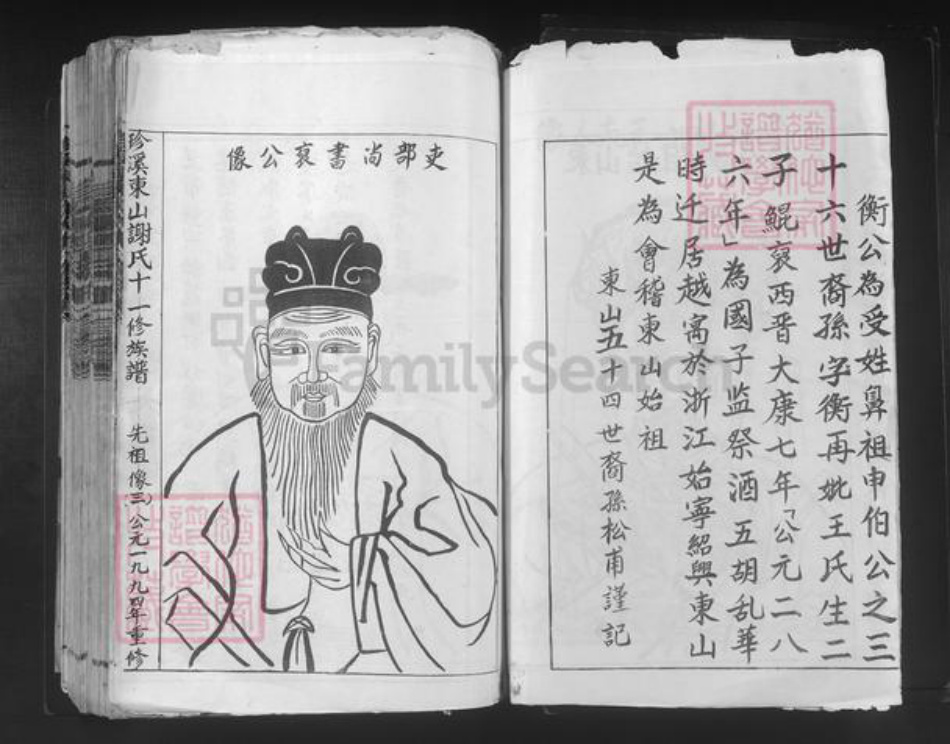 衡公為受姓鼻祖申伯公之三
十六世裔孫字衡再妣王氏生二
子鯤裒西晋大康七年「公元二八
六年」為國子监祭酒五胡乱華
時迁居越寓於浙江始寧紹興東山
是為會稽東山始祖
東山五十四世裔孫松甫謹記
吏部尚書裒公像
珍溪東山謝氏十一修族譜 先祖像 公元一九九年重修
FamilySearch